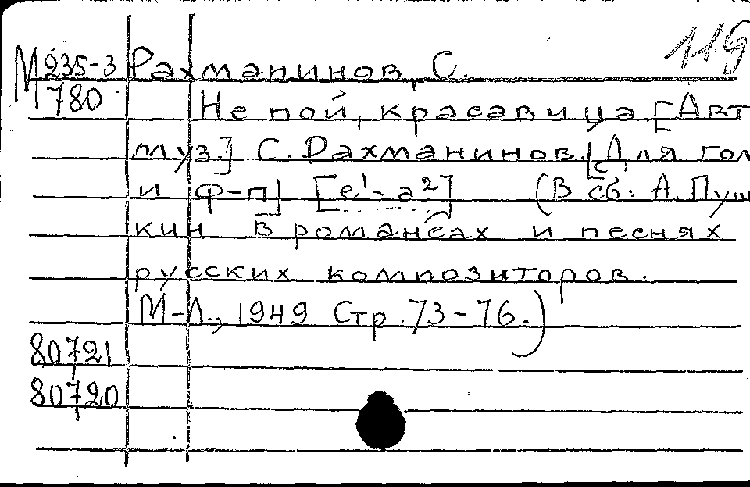 119
М 235-3 Рахманинов, С.
1780 Не пой, красавица [Авт
муз.] С. Рахманинов. [Для гол
и ф-п] [e¹-a²] (В сб: А. Пуш
кин в романсах и песнях
русских композиторов.
М-Л., 1949 Стр. 73-76.)
80721
80720